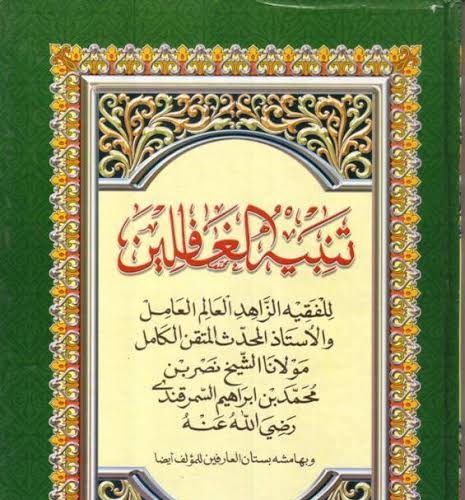 تنبيه الغافلين
للفقيه الزاهد العالم العامل
والأستاذ المحدث المتقن الكامل
مولانا الشيخ نصر بن
محمد بن ابراهيم السمرقندي
رضي الله عنه
وبهامشه بستان العارفين للمؤلف أيضا